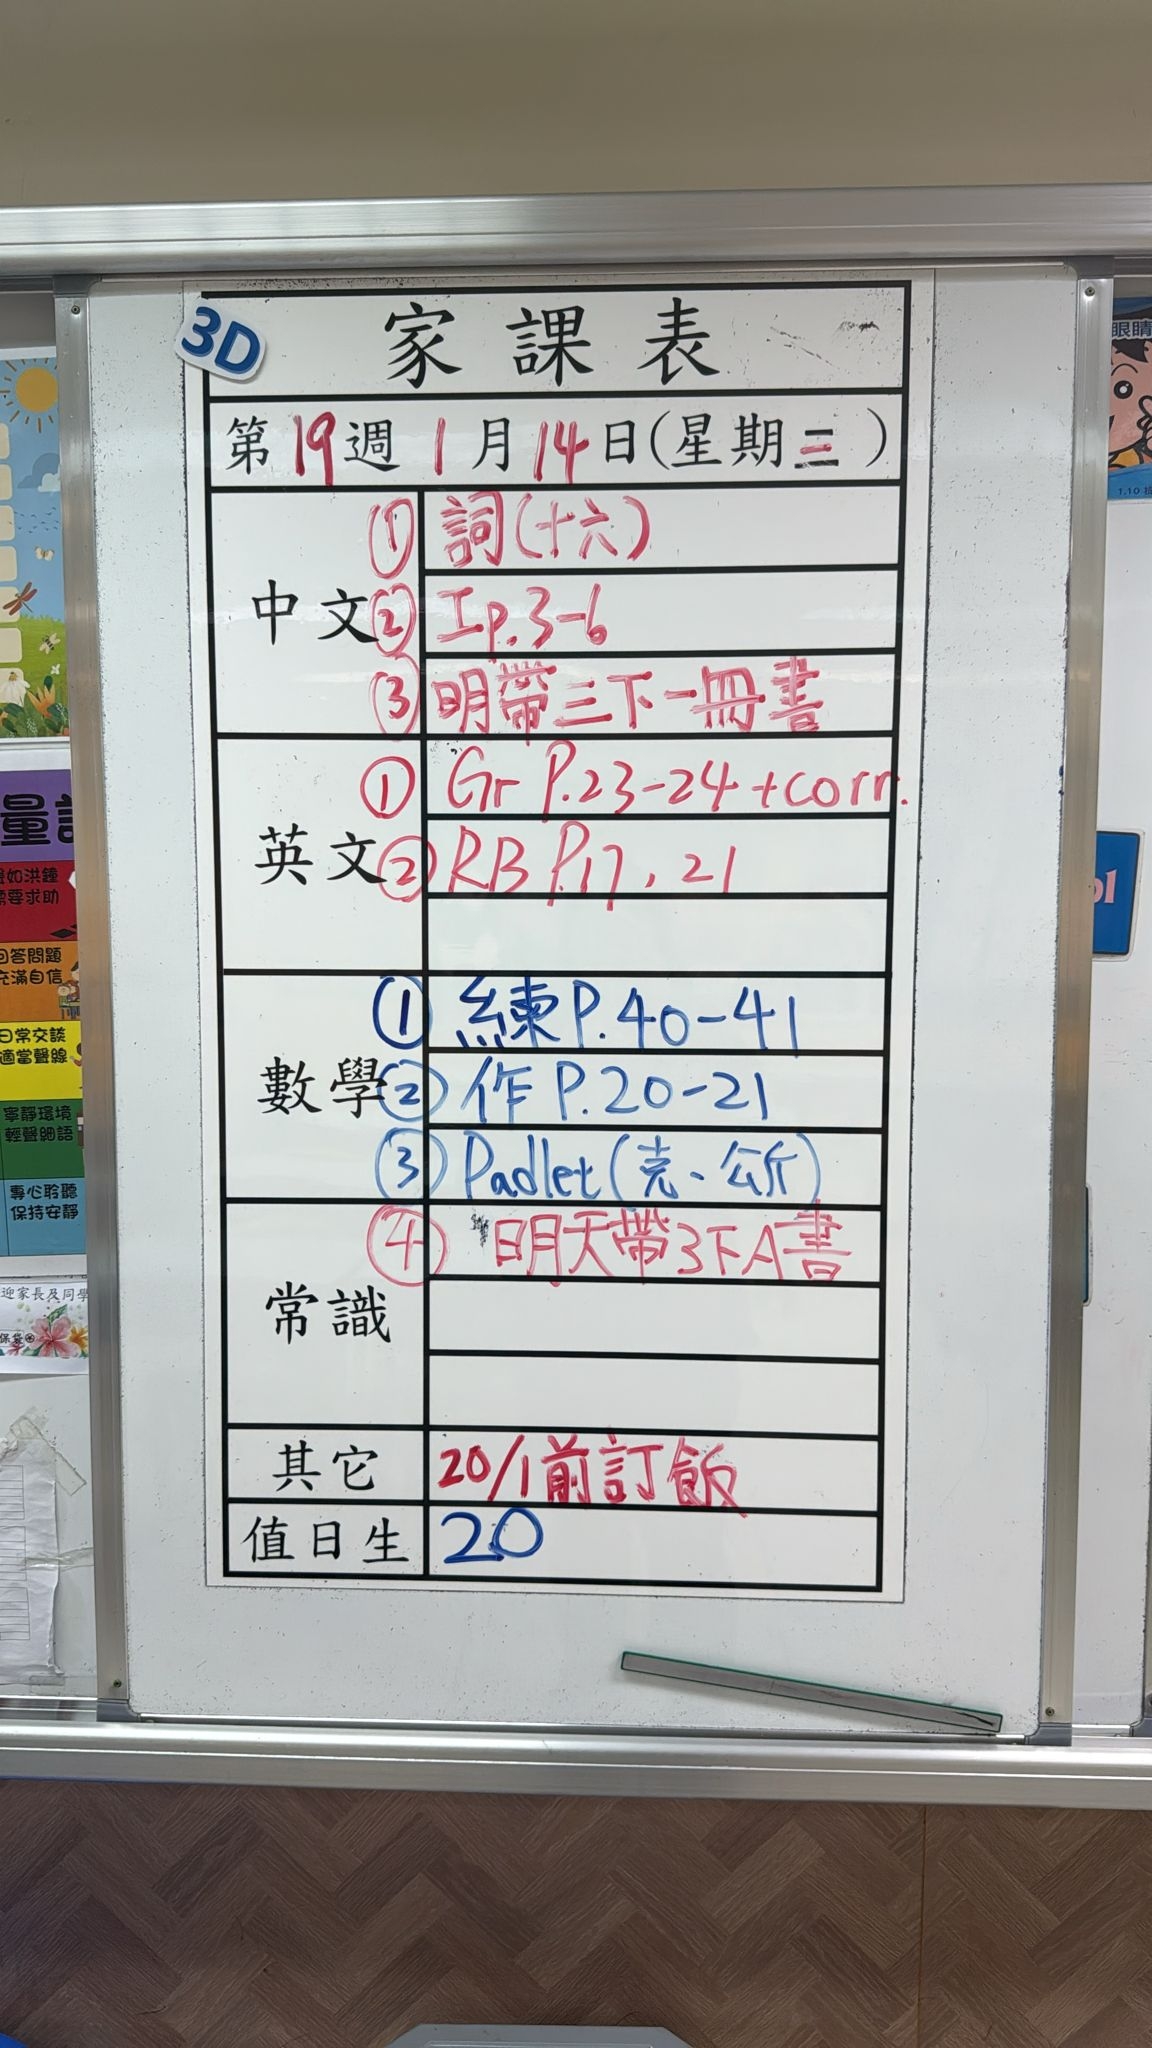 3D
家課表
第19週 1月14日(星期三)
中文
① 詞(十六)
② 工p.3-6
③ 明帶三下一冊書
英文
① Gr P.23-24 +corr.
② RB P.17, 21
數學
① 練P.40-41
② 作 P.20-21
③ Padlet(克、公斤)
常識
④ 明天帶3下A書
其它
20/1前訂飯
值日生
20
如洪鐘
需要求助
回答問題
充滿自信
日常交談
適當聲線
寧靜環境
輕聲細語
專心聆聽
保持安靜
迎家長及同學
保袋
眼睛
1.10